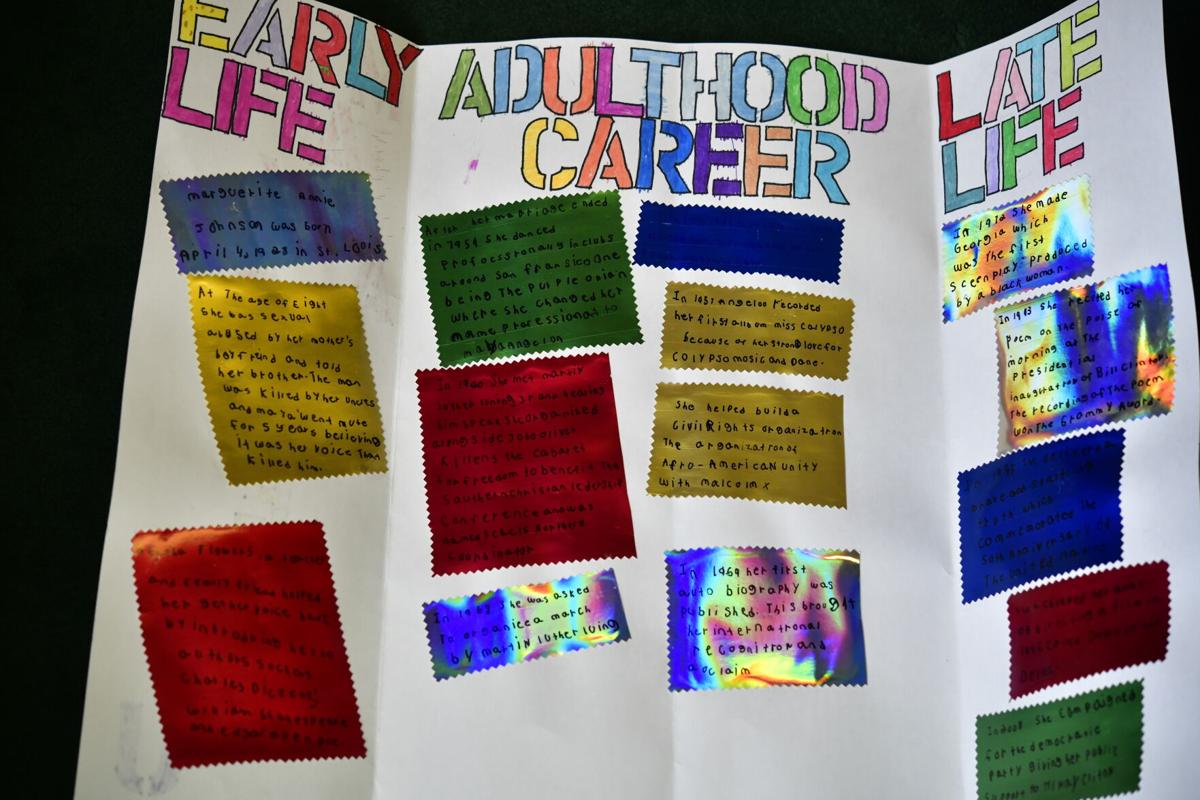 EARLY
LIFE
marguerite Annie
Johnson was born
April 4, 1928 in St. Louis
At The age of Eight
She was sexual
abused by her mother's
boyfreind and told
her brother. The man
was killed by her uncles
and maya went mute
for 5 years believing
it was her voice Than
killed him.
Flowers a teacher
and family friend helped
her gether voice back
by introducing her to
authors such as
Charles Dickens,
william Shakespeare
and edgar allen poe
ADULTHOOD
CAREER
her marriage ended
in 1954 She danced
professionally in clubs
around San Fransico One
being The Purple onion
where she changed her
name professional to
maya angelou
In 1960 She met martin
luther king Jr and hearing
him speak She organized
alongside John oliver
Killens The Cabaret
for freedom to benefit The
Southern christian leadership
Conference and was
named
In 19 She was asked
To organize a march
by martin luther
In 1957 Angelou recorded
her first album miss calypso
because of her strong love for
calypso mosic and Dane.
She helped build a
Civil Rights organization
The organization of
Afro-American unity
with malcolm x
In 1969 her first
auto biography was
published. This brought
her international
recognition and
acclaim
LATE
LIFE
In 1972 She made
Georgia which
was The first
Screen play produced
by a black woman.
In 1993 She recited her
Poem on The Pulse of
morning at The
Presidential
inaguration of Bill Clinton
The recording of The Poem
won The Grammy Award.
In 1995 She
brave and Startling
truth which
commemorated The
50th Anniversary of
The united nations
of directing a film in
1996
Delta.
In 2008 She campaigned
for the democratic
party giving her public
Support to